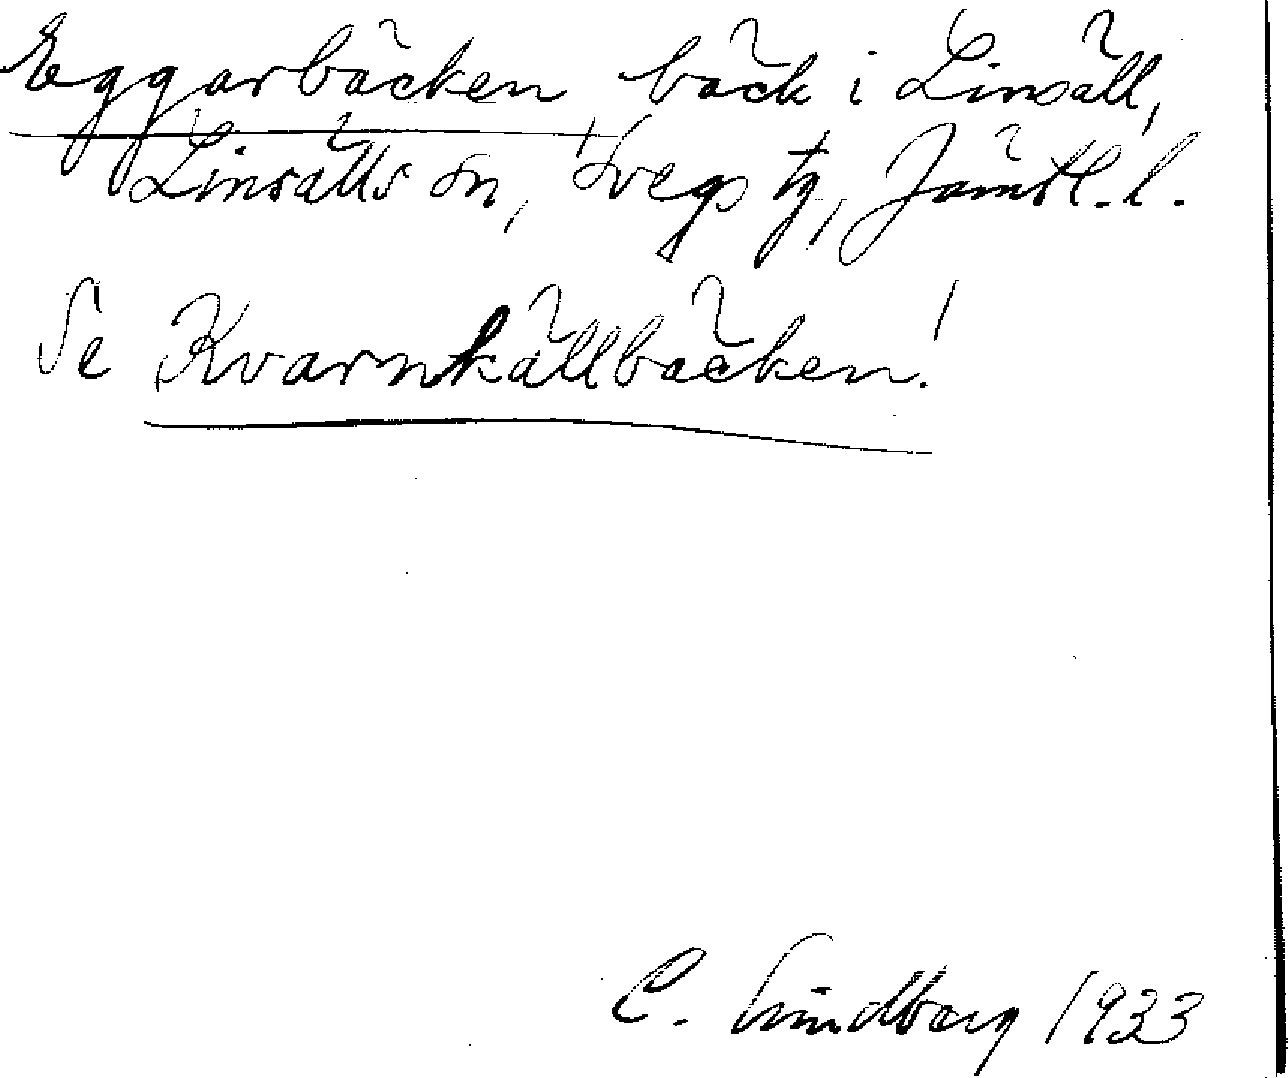 Eggarbäcken bäck i Linsäll,
Linsälls sn, Svegs tg, Jämtl. l.
Se Kvarnkällbäcken!
C. Lindberg 1933